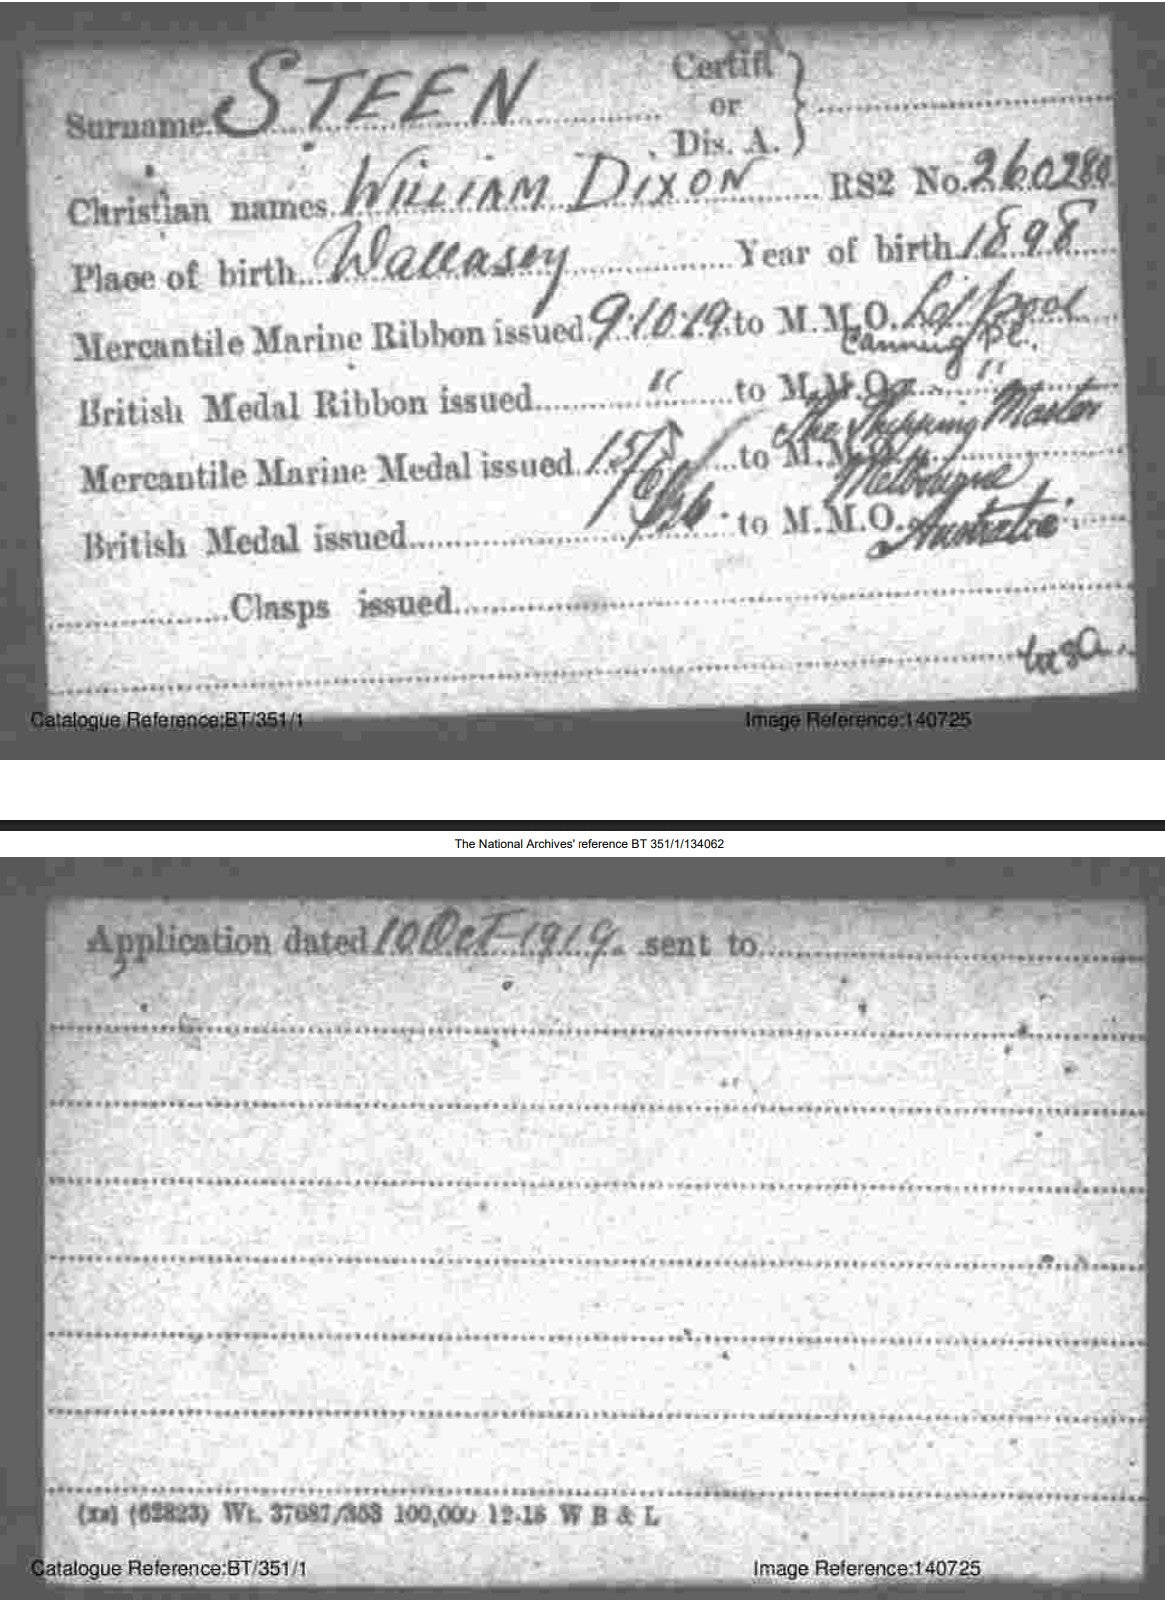 Certifi
or
Dis. A.
Surname. STEEN
Christian names. WILLIAM DIXON RS2 No. 260280
Place of birth. Wallasey Year of birth. 1898
Mercantile Marine Ribbon issued. 9.10.19. to M.M.O. L'pool
Canning Pl.
British Medal Ribbon issued. " to M.M.O. "
The Shipping Master
Mercantile Marine Medal issued. to M.M.O.
Melbourne
British Medal issued. to M.M.O. Australia
Clasps issued.
Catalogue Reference:BT/351/1 Image Reference:140725
The National Archives' reference BT 351/1/134062
Application dated 10 Oct 1919. sent to
(xx) (62823) Wt. 37687/353 100,000 12.18 W B & L
Catalogue Reference:BT/351/1 Image Reference:140725